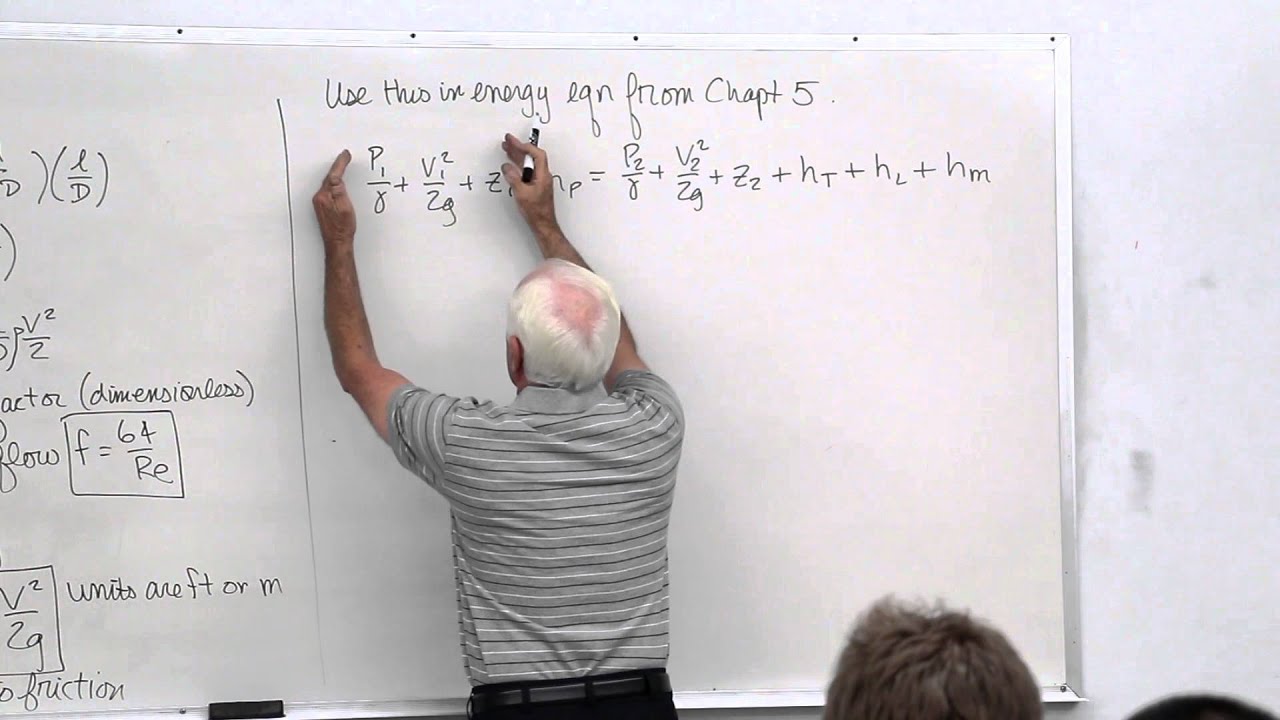 )(l/D)
)
) V²/2
actor (dimensionless)
flow f = 64/Re
V²/2g units are ft or m
friction
Use this in energy eqn from Chapt 5.
P₁/γ + V₁²/2g + z₁ hₚ = P₂/γ + V₂²/2g + z₂ + h_T + h_L + h_m